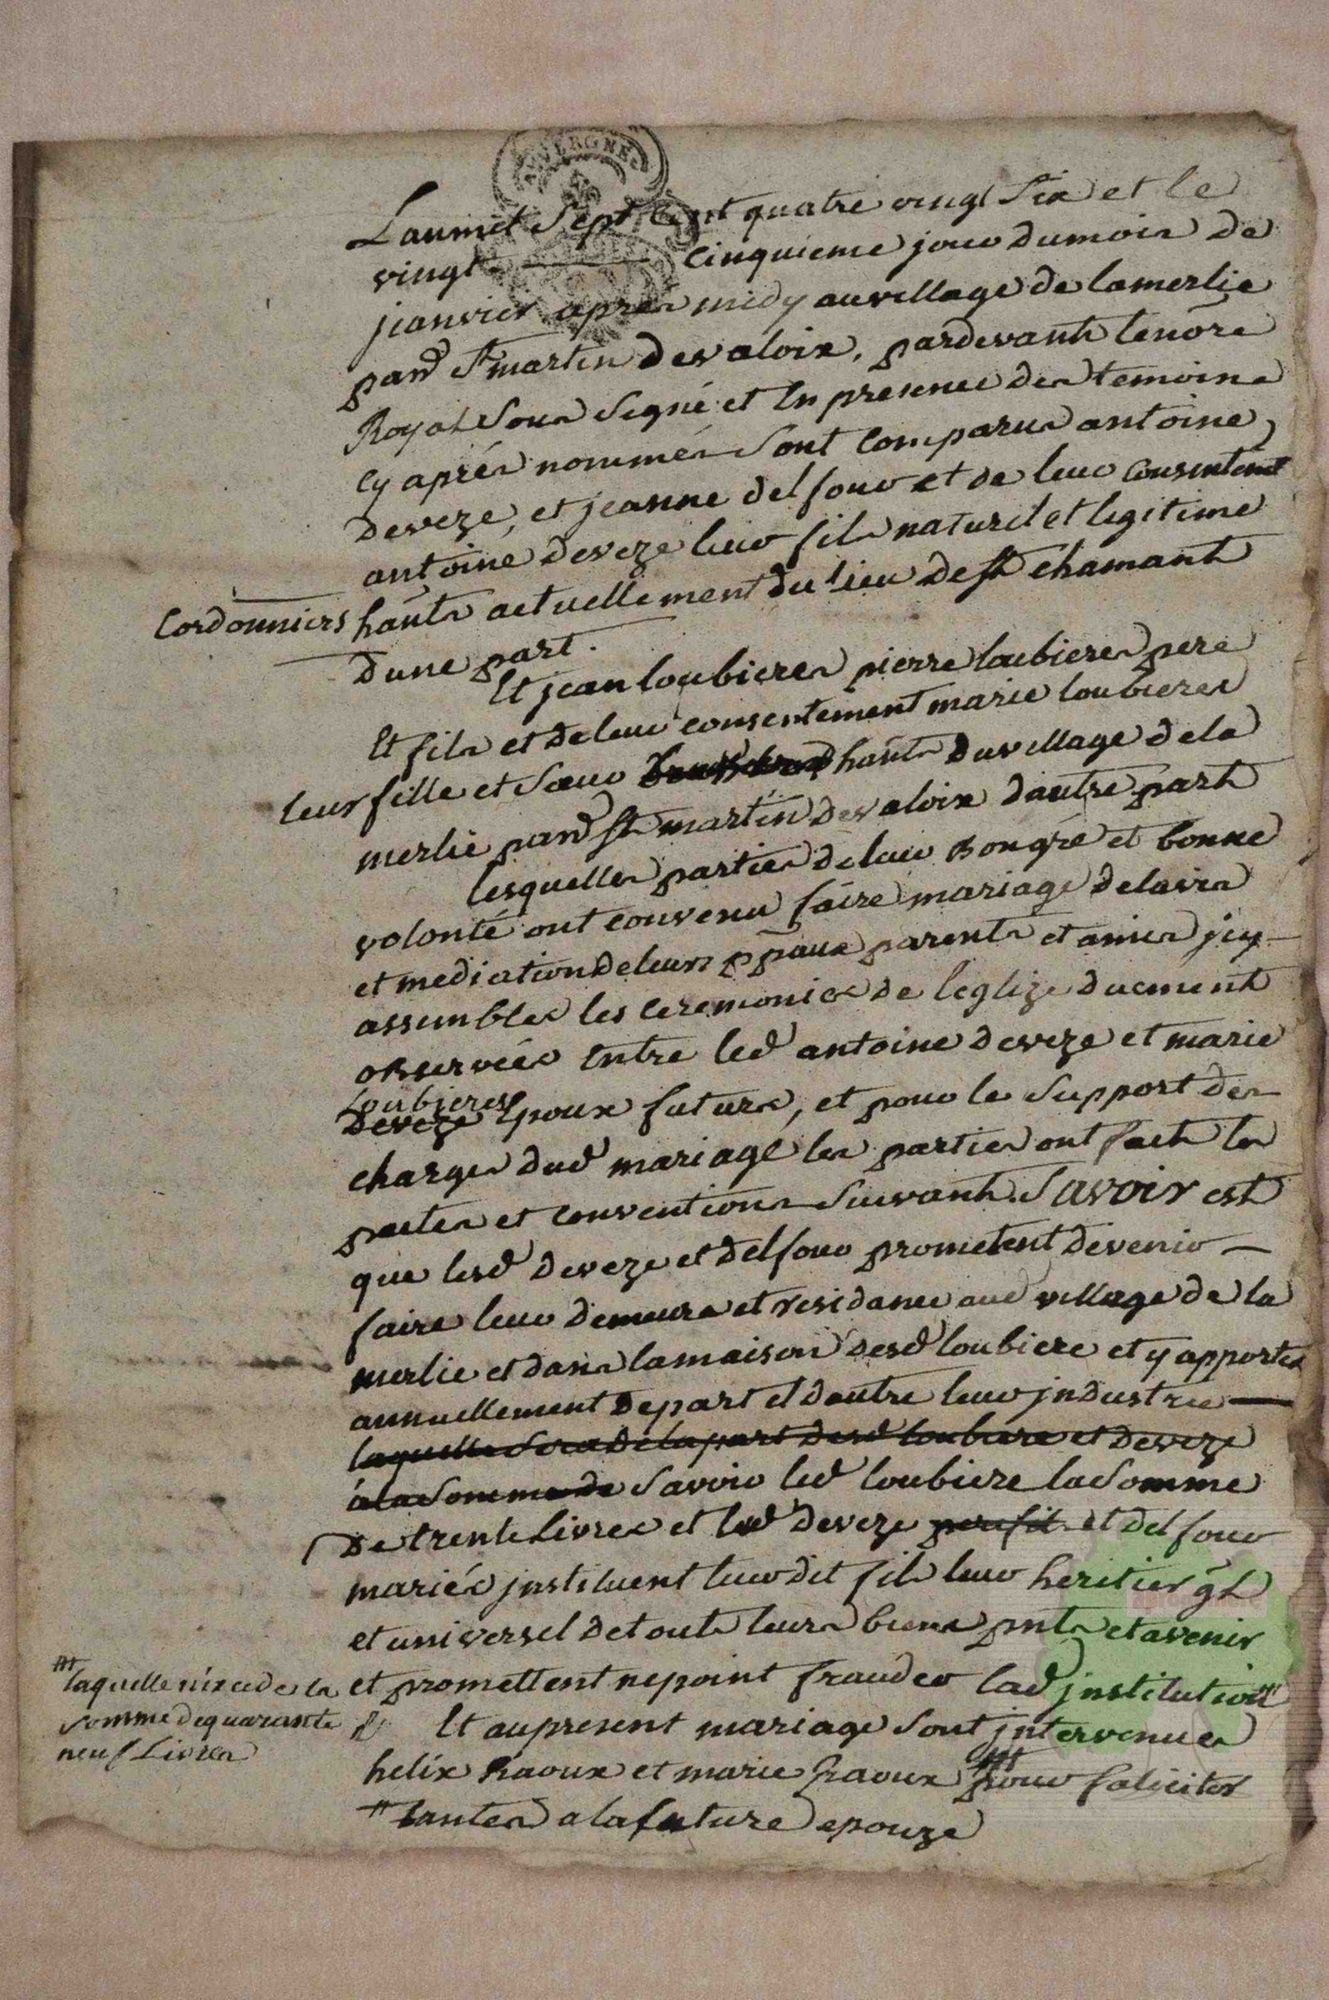 AUVERGNE
Lan mil Sept Cent quatre vingt Six et le
vingt cinquieme jour du mois de
jeanvier apres midy au village de lamerlie
parsse St martin devaloix, pardevant le nore
Royal Sous Signé et En presence des temoins
Cy aprés nommés Sont Comparus antoine
deveze, et jeanne delfour et de leur consentemt
antoine deveze leur fils naturel et legitime
Cordonniers
hants actuellement du lieu de St chamant
dune part.
Et jean loubieres pierre loubieres pere
Et fils et de leur consentement marie loubieres
leur fille et Sœur hants du village de la
merlie parsse St martin devaloix dautre part
lesquelles parties de leur Bon gré et bonne
volonté ont convenu faire mariage de lavis
et mediation de leurs ppaux parents et amis jcy
assemblés les Ceremonies de leglize duement
observées Entre led antoine deveze et marie
Loubieres
deveze Epoux futurs, et pour le Support des
charges dud mariage les parties ont fait les
pactes et conventions Suivants. Savoir est
que lesd deveze et delfour prometent de venir
faire leur demeure et residance aud village de la
merlie et dans la maison desd loubiere et y apporter
annuellement de part et dautre leur jndustrie
laquelle Sera de la part desd loubiere et deveze
a la Somme de Savoir led loubiere la Somme
de trente Livres et led deveze et delfour
mariés jnstituent leur dit fils leur heritier gl
et universel de touts leurs biens pnts et avenir
et promettent ne point frauder lad jnstitution
laquelle n'excede la
Somme de quarante
neuf Livres
Et au present mariage Sont jntervenues
helix Raoux et marie Raoux pour faliciter
tantes a la future epouze